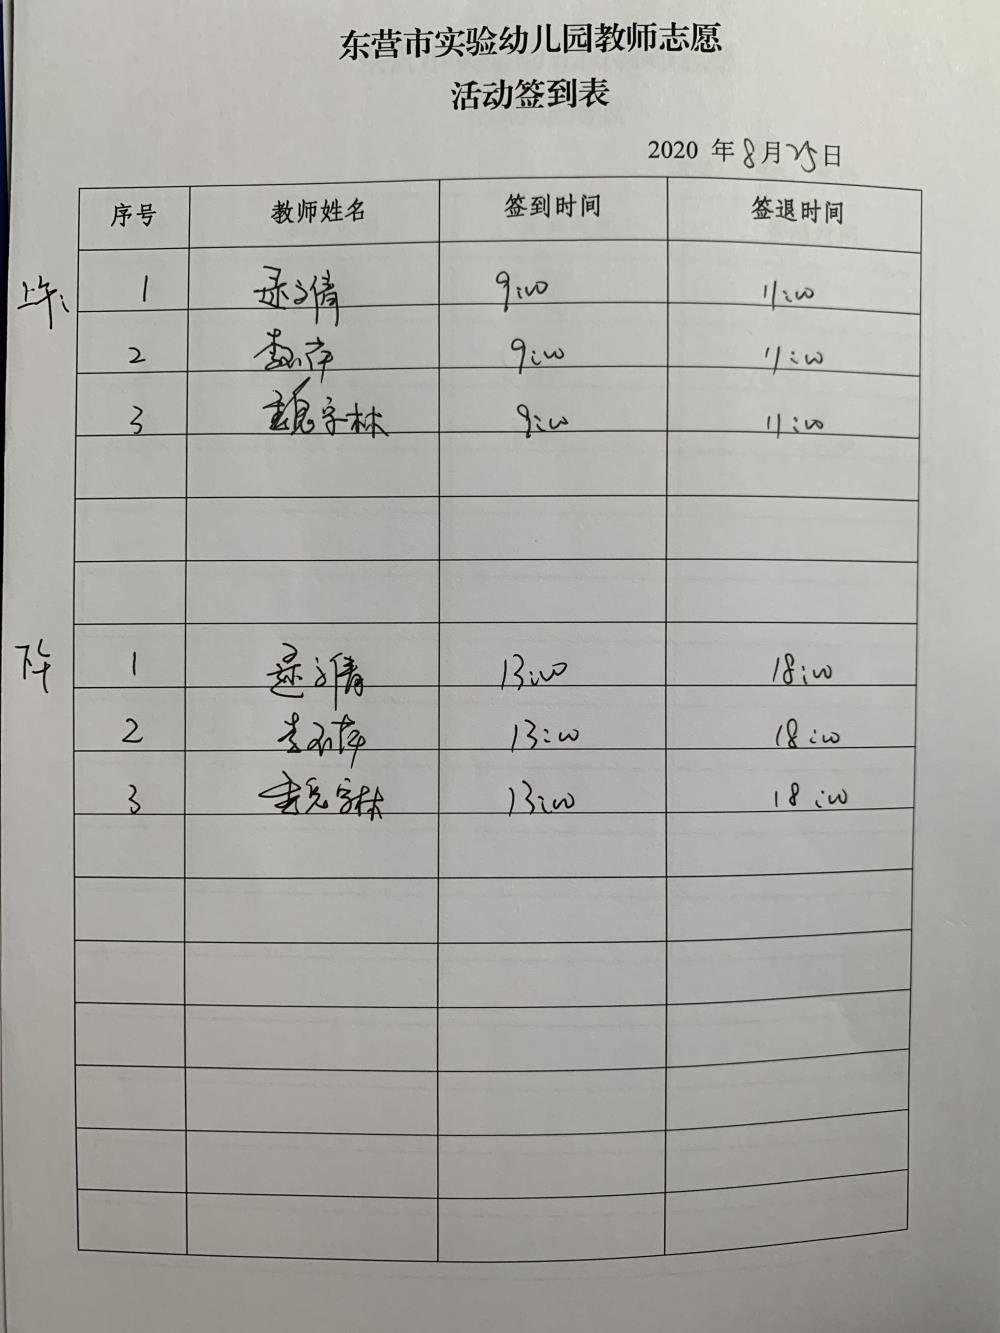 东营市实验幼儿园教师志愿
活动签到表
2020 年8月25日
序号 教师姓名 签到时间 签退时间
上午: 1 9:00 11:00
2 9:00 11:00
3 魏字林 9:00 11:00
下午 1 13:00 18:00
2 13:00 18:00
3 魏字林 13:00 18:00